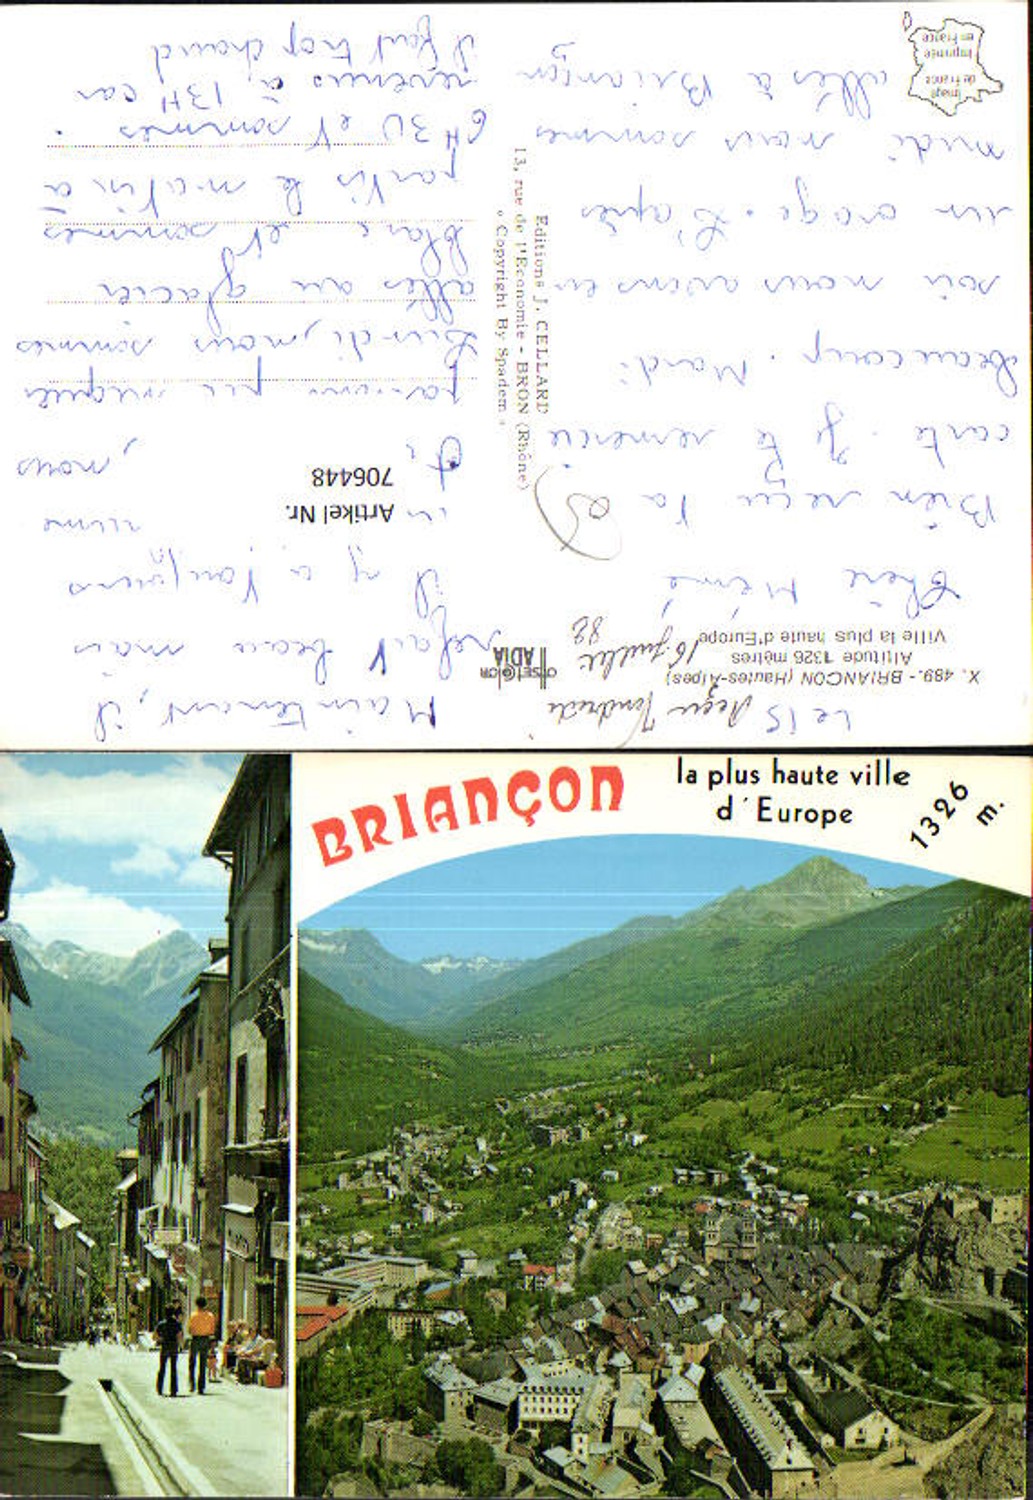 X. 489.- BRIANCON (Hautes-Alpes)
Altitude 1326 mètres
Ville la plus haute d'Europe
Le 15
Reçu Vendredi
16 juillet 82
Chère Mémé
Bien reçu ta
carte. Je te remercie
beaucoup. Mardi
soir nous avons eu
un orage. L'après
midi nous sommes
allés à Briançon
Maintenant, il
refait beau mais
il y a toujours
un
nous
Lundi, nous sommes
allés au glacier
blanc et sommes
partis le matin à
6H30 et sommes
revenus à 13H car
il fait trop chaud
Editions J. CELLARD
13, rue de l'Economie - BRON (Rhône)
« Copyright By Spadem »
OFFSET COLOR
ADIA
Artikel Nr.
706448
Image
de France
Imprimée
en France
BRIANÇON
la plus haute ville
d'Europe
1326
m.